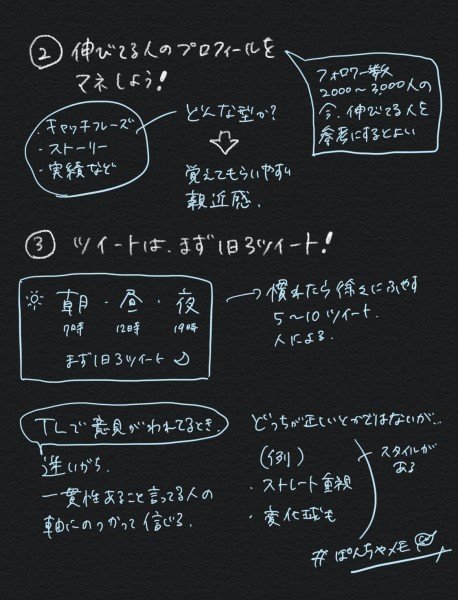 ② 伸びてる人のプロフィールを
マネしよう!
フォロワー数
2000〜3,000人の
今、伸びてる人を
参考にするとよい
・キャッチフレーズ
・ストーリー
・実績など
どんな型か?
覚えてもらいやすい
親近感、
③ ツイートは、まず1日3ツイート!
朝・昼・夜
7時 12時 19時
まず1日3ツイート
慣れたら徐々にふやす
5〜10ツイート、
人による、
TLで意見がわれてるとき、
迷いがち、
一貫性あること言ってる人の
軸にのっかって信じる、
どっちが正しいとかではないが…
(例)
・ストレート重視
・変化球も
スタイルが
ある
#ぱんちゃメモ